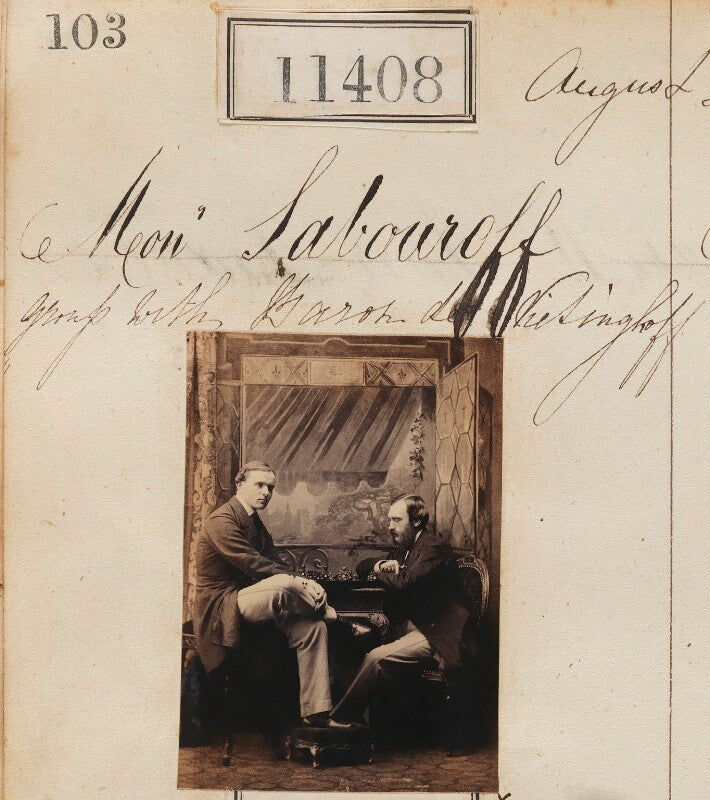 103
11408
August
Monr Sabouroff
group with Baron de Vietinghoff